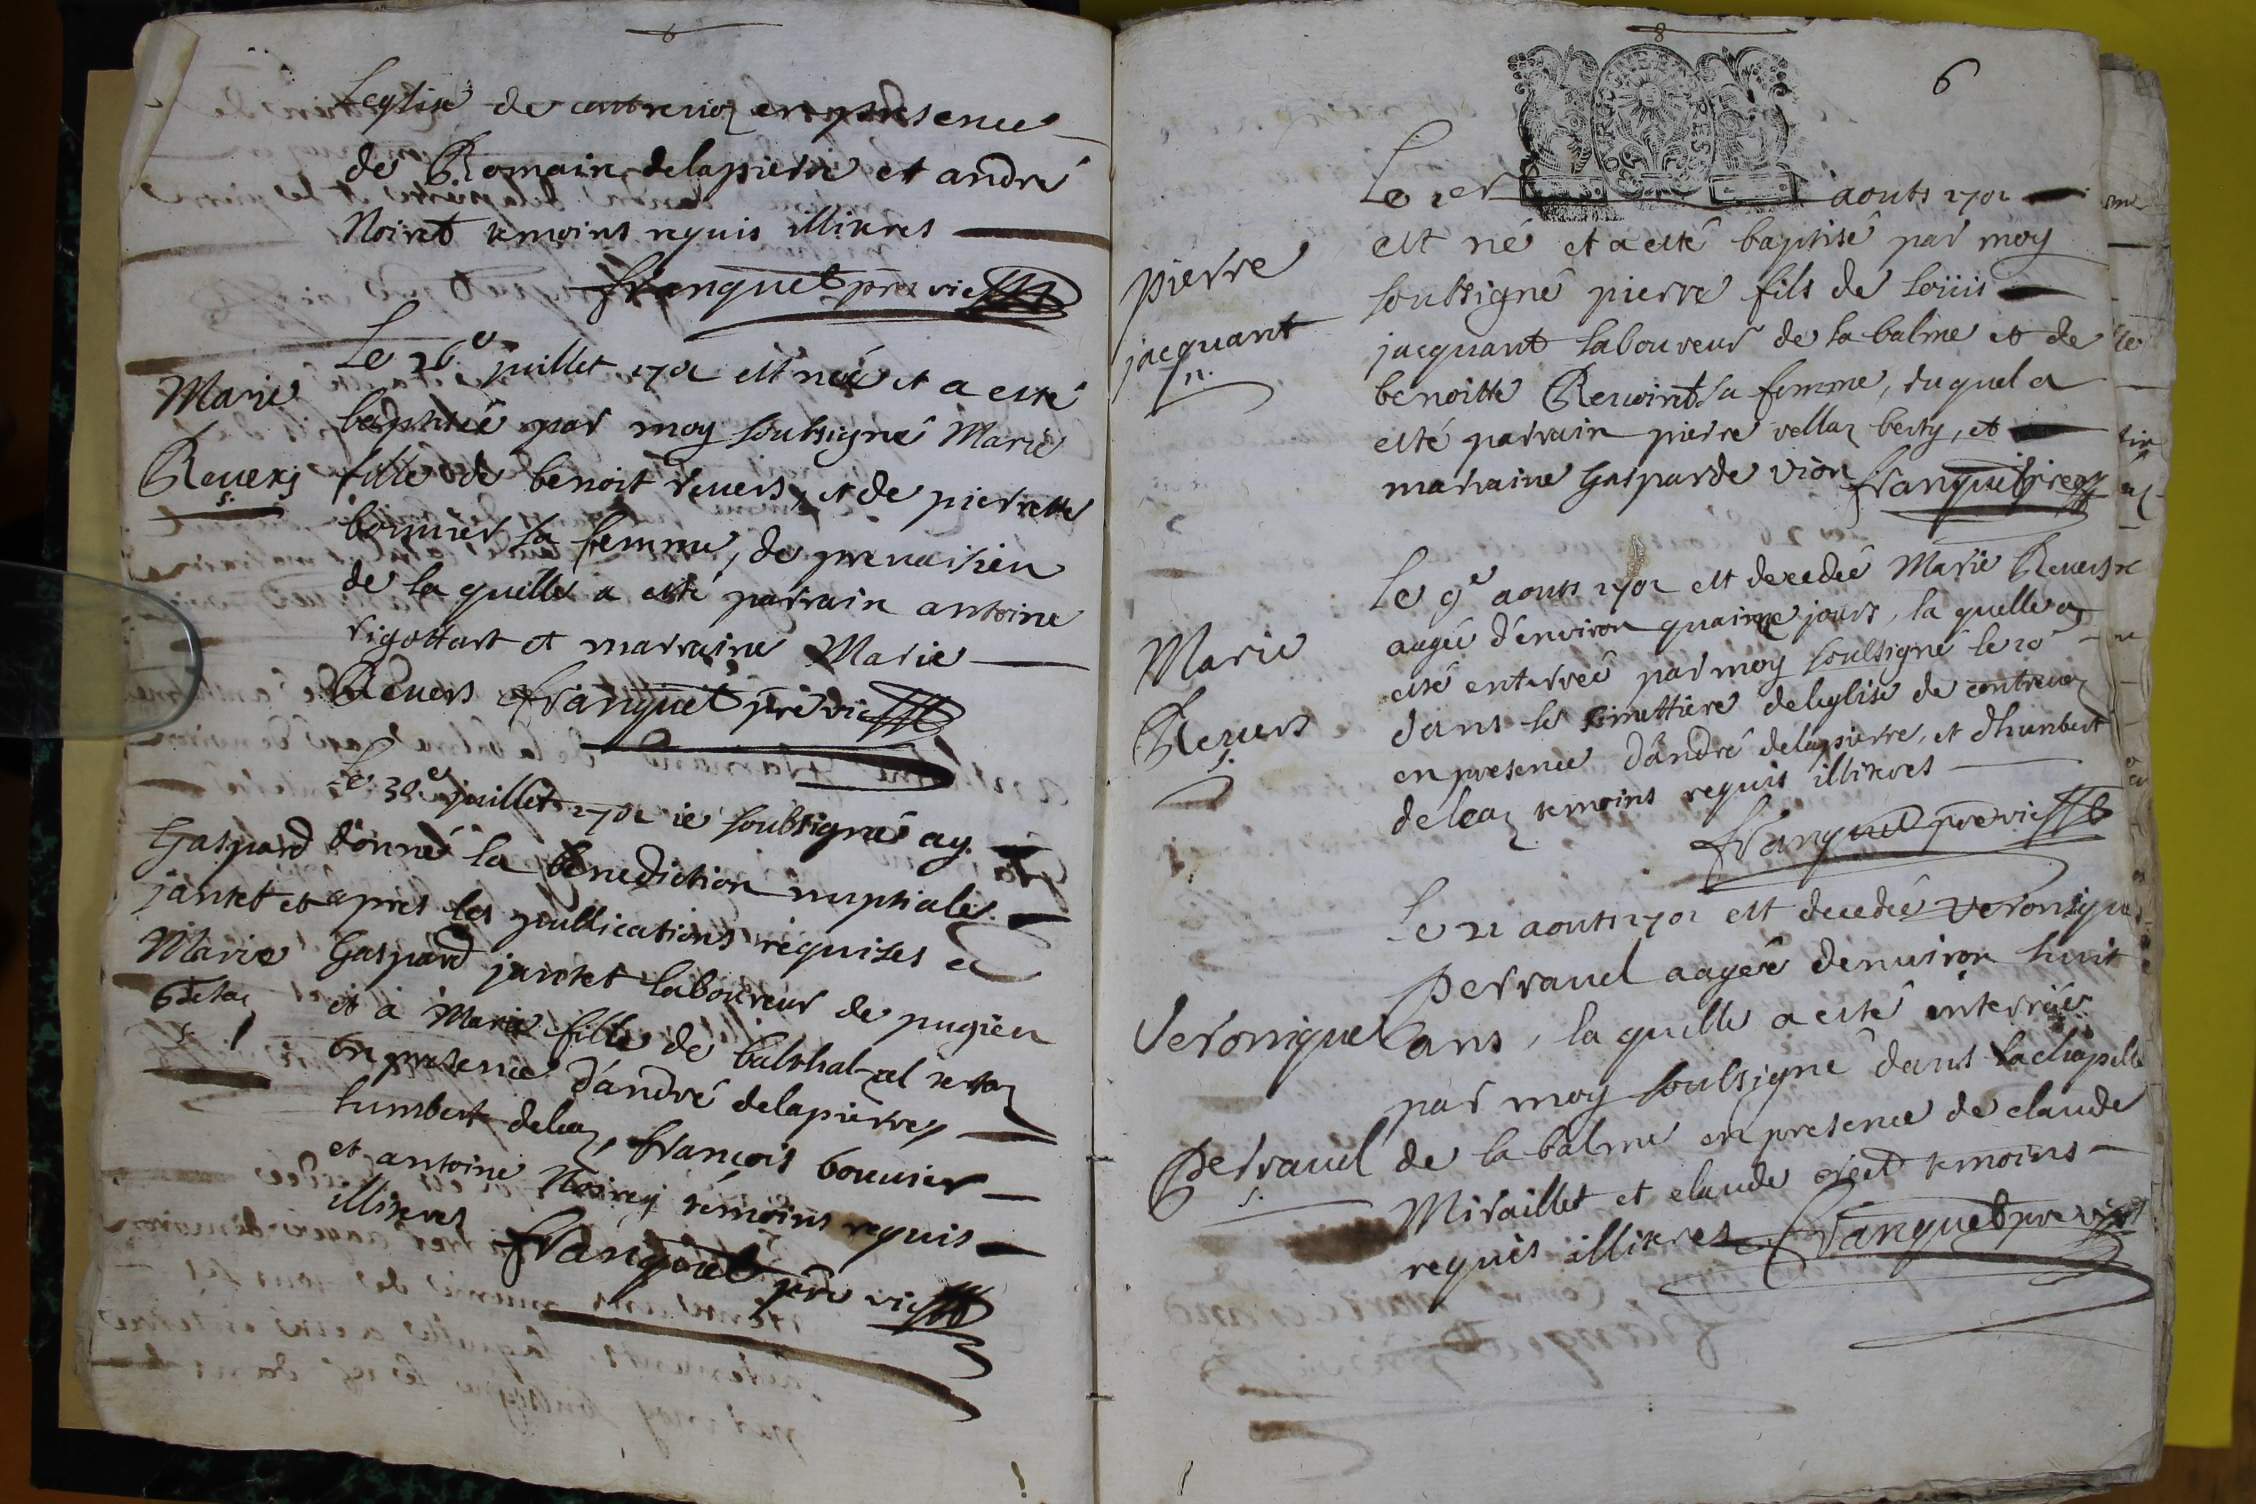 leglise de contrevoz en presence
de Romain delapierre et andré
Noiret temoins requis illiteres
franquet prre vic
Le 26e juillet 1701 est neé et a esté
baptiseé par moy soubsigné Marie
fille de benoit revers, et de pierrette
bonnier sa femme, de premeisieu
de la quelle a esté parrain antoine
rigottart et marraine Marie
Revers franquet prre vic
Marie
Revers
s.
Le 30e juillet 1701 ie soubsigné ay
donné la benediction nuptiale
apres les publications requises a
Gaspard jantet laboureur de pugieu
et a Marie fille de balthalzal tetaz
en presence d'andré delapierre,
humbert deleaz, francois bouvier
et antoine Noirey témoins requis
illiteres franquet prre vic
Gaspard
jantet et
Marie
tetaz
s.
8
6
Le 1er aouts 1701
est né et a esté baptisé par moy
soubsigné pierre fils de loüis
jacquant laboureur de la balme et de
benoitte Revoint sa femme, duquel a
esté parrain pierre vellaz berty, et
marraine Gasparde vion franquet
pierre
jacquant
n.
Le 9e aouts 1701 est decedeé Marie Revers
aageé d'environ quainze jours, la quelle a
esté enterreé par moy soubsigné le 10e
dans le simettiere de leglise de contrevoz
en presence d'andré delapierre, et d'humbert
deleaz temoins requis illiteres
franquet prre vic
Marie
Revers
s.
Le 21 aouts 1701 est decedeé veronique
perraud aageé denviron huit
ans, la quelle a esté enterreé
par moy soubsigné dans la chapelle
de la balme en presence de claude
Miraillet et claude temoins
requis illiteres franquet prre vic
Veronique
perraud
s.